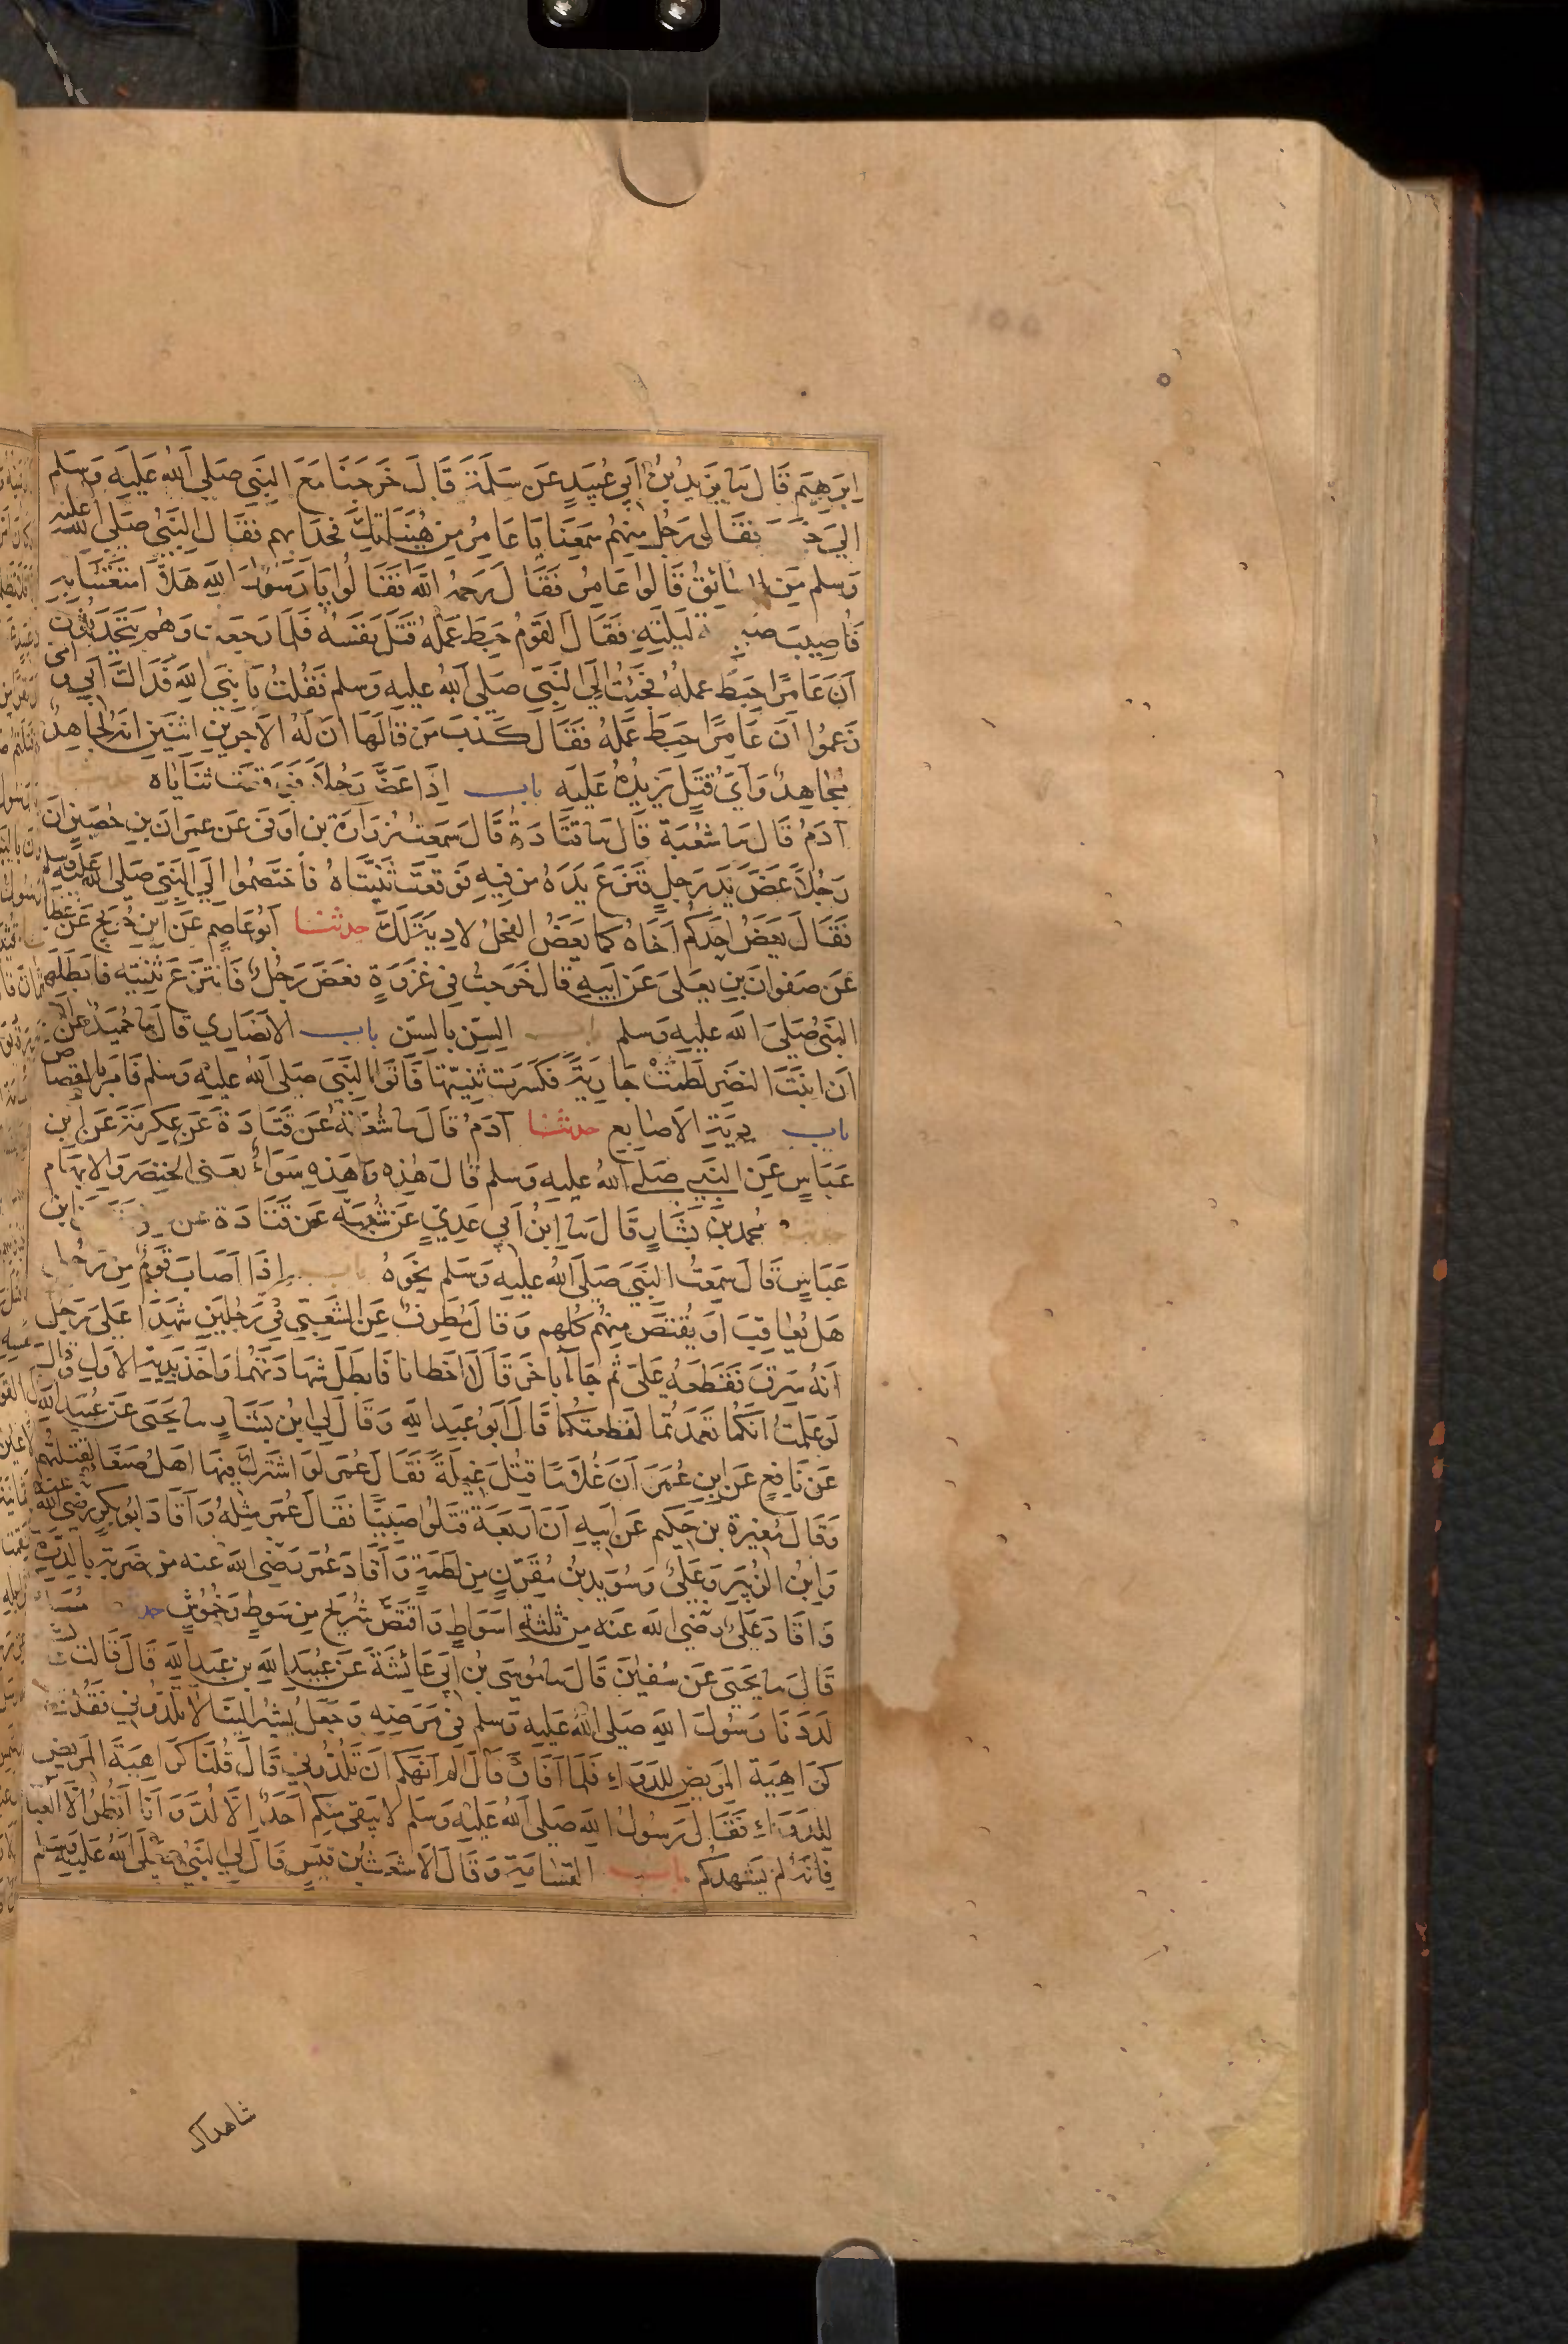 اِبرَهِيمَ قَالَ سا يَزيدُ بنُ اَبِي عُبَيدٍ عَن سَلَمَةَ قَالَ خَرَجنَا مَعَ النَبِي صَلى اللهُ عَليهِ وَسَلم
الي فقَال رَجُل مِنهُم سَمِعنَا يَا عَامِرُ مِن هُنَيَاتِكَ فحَدَا بهم فقَالَ النَبيُ صَلى الله عليه
وَسلم مَنِ السَائِقُ قَالوا عَامِرُ فَقَالَ رَحِمَهُ اللَهُ فقَالُوا يَا رَسُولَ اللهِ هَلاَّ امتَعتَنَا بِهِ
فَاُصِيبَ لَيلَتِهِ فقَالَ القَومُ حَبِطَ عَمَلُهُ قَتَلَ نَفسَهُ فَلَما رَجَعت وَهُم يَتَحَدَثُونَ
اَنَ عَامِرًا حَبِطَ عملهُ فجَئتُ اِلَي النَبِيِ صَلي اللهُ عليهِ وَسلم فَقُلتُ يَا نبِيَ اللهِ فَدَاكَ اَبِي وامي
زَعَمُوا اَنَ عَامِرًا حَبِطَ عَمَلُهُ فقَالَ كَذبَ مَن قالهَا اِنَ لَهُ لاَجرَينِ اثنَينِ اِنهُ لجَاهِدٌ
مُجَاهِدٌ وَاَيُ قَتلٍ يَزيدُهُ عَلَيهِ باب اِذَا عَضَّ رَجُلاً فَوَقعَت ثنَايَاه
آدَمُ قَالَ سا شُعبَة قَالَ سا قتَادَة قَالَ سَمِعتُ زرَارَة بن اَوفىَ عَن عِمرَانَ بنِ حُصَينٍ اَن
رَجُلاً عَضَّ يَدَ رَجلٍ فنَزَعَ يَدَهُ مِن فِيهِ فوَقعَت ثَنِيَتَاهُ فَاختَصَمُوا اِلَي النَبِي صَلى الله عليه وسلم
فقَالَ يَعَضُ اَحَدكُم اَخَاهُ كما يَعَضُ الفَحلُ لا دِيَةَ لَكَ حدثنا اَبُو عَاصِم عَن ابن جُرَيجٍ عَن عَطا
عَن صَفوَانَ بنِ يعلىَ عَن اَبيهِ قالَ خَرَجتُ فِي غَزوَةٍ فعَضَ رَجُلٌ فَانتزَعَ ثَنِيته فابطَلَها
النَبيُ صَلىَ اللهُ عليهِ وَسلم باب السِنِ بالسِنِ باب الاَنصَارِي قَالَ سا حُمَيدٌ عَن
اَن ابنَتَ النضرِ لَطَمَت جَارِيَةً فكسَرَت ثنِيَتهَا فَاتَوا النَبِيَ صَلى الله عليهِ وَسلم فَامَرَ بِالقِصَاص
باب دِيَةِ الاَصَابِعِ حدثنا آدَمُ قالَ سا شُعبَة عَن قتَادَة عَن عِكرِمَة عَن ابن
عَباسٍ عَنِ النَبِي صَلى اللهُ عليهِ وَسلم قالَ هَذِه وَهَذِه سَوَاءٌ يعَني الخِنصَرَ وَالاِبهَام
مُحمَد بن بَشَارٍ قَالَ سا اِبنُ اَبِي عَدِيٍ عَن شُعبَة عَن قتَادَة عن ابن
عَبَاسٍ قَالَ سَمِعتُ النَبِيَ صَلى اللهُ عليهِ وَسَلم نحَوَهُ باب اِذَا اَصَابَ قَومٌ مِن رَجُل
هَل يُعَاقبَ اَو يُقتَصَ مِنهُم كُلهم وَقالَ مُطَرِفٌ عَنِ الشَعبِيّ فِي رَجُلَينِ شَهِدَا عَلى رَجُل
اَنهُ سَرقَ فقَطَعَهُ عَلي ثم جَاآ بآخَرَ قَالاَ اخطَانا فَابطَلَ شهَادَتَهُمَا وَاخَذ بدِيَةِ الاَولِ وَقالَ
لَو عَلِمتُ اَنَكُمَا تَعمَدتُمَا لقَطعتكُمَا قَالَ اَبُو عَبدِ اللهِ وَقالَ لِي اِبن بَشَارٍ سا يَحيىَ عَن عُبَيدِ الله
عَن نَافِعٍ عَنِ ابنِ عُمَرَ اَنَ غُلاَمًا قتلَ غِيلَةً فقَالَ عُمَر لَو اشتَركَ فِيهَا اَهلُ صَنعَا لقتَلتُهُم
وَقالَ مُغِيرَة بن حَكِيمٍ عَن اَبِيهِ اَنَ اَربَعَةً قتَلوا صَبِيًا فقَالَ عُمَر مِثلهُ وَاَقَادَ اَبُو بَكرٍ رضي الله عنه
وَابنُ الزُبَيرِ وَعَليُ وَسُوَيد بنُ مُقَرِنٍ مِن لَطمَةٍ وَاَقَادَ عُمَر رَضِيَ اللهُ عنه مِن ضَربَةٍ بِالدِرَة
وَاَقادَ عَليُ رَضِيَ اللهُ عَنهُ مِن ثلثةِ اَسوَاطٍ وَاقتَصَ شُرَيح مِن سَوطٍ وَخُمُوشٍ
قَالَ سا يَحيَى عَن سُفيٰنَ قَالَ سا مُوسَى بنُ اَبِي عَائِشَةَ عَن عُبَيدِ اللهِ بنِ عَبدِ اللهِ قَالَ قَالت
لَدَدنَا رَسُولَ اللهِ صَلى اللهُ عَليهِ وَسلم فِي مَرَضِهِ وَجَعَلَ يُشِيرُ اِلَينَا لاَ تَلُدُونِي فَقُلنا
كرَاهِيَة المرِيضِ للدَوَاءِ فَلَما اَفَاقَ قَالَ اَلم اَنهَكم اَن تَلُدُونِي قَالَ قُلنَا كَرَاهِيَة المَرِيض
لِلدَوَاءِ فقَالَ رَسُولُ اللهِ صَلى اللهُ عليهِ وَسَلم لا يَبقَى مِنكم اَحَدٌ اِلاَّ لُدَّ وَاَنَا اَنظُرُ اِلاَّ العَبا
فَاِنهُ لم يَشهَدكُم باب القسَامَةِ وَقالَ الاَشعَث بن قيَسٍ قَالَ لِي النَبِيُ صَلَي اللهُ عَليهِ وسَلم
شاهداك